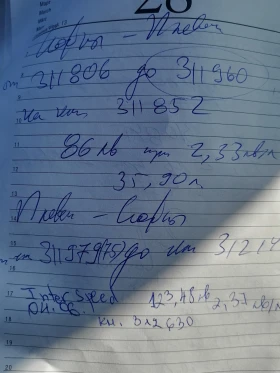 28
– Плевен
от 311806 до 311960
на км 311852
86 лв при 2,33 лв/л
35,90 л.
Плевен –
311979 (75) до км 3121
Inter Speed 123,48 лв 2,37 лв/л
км. 312630